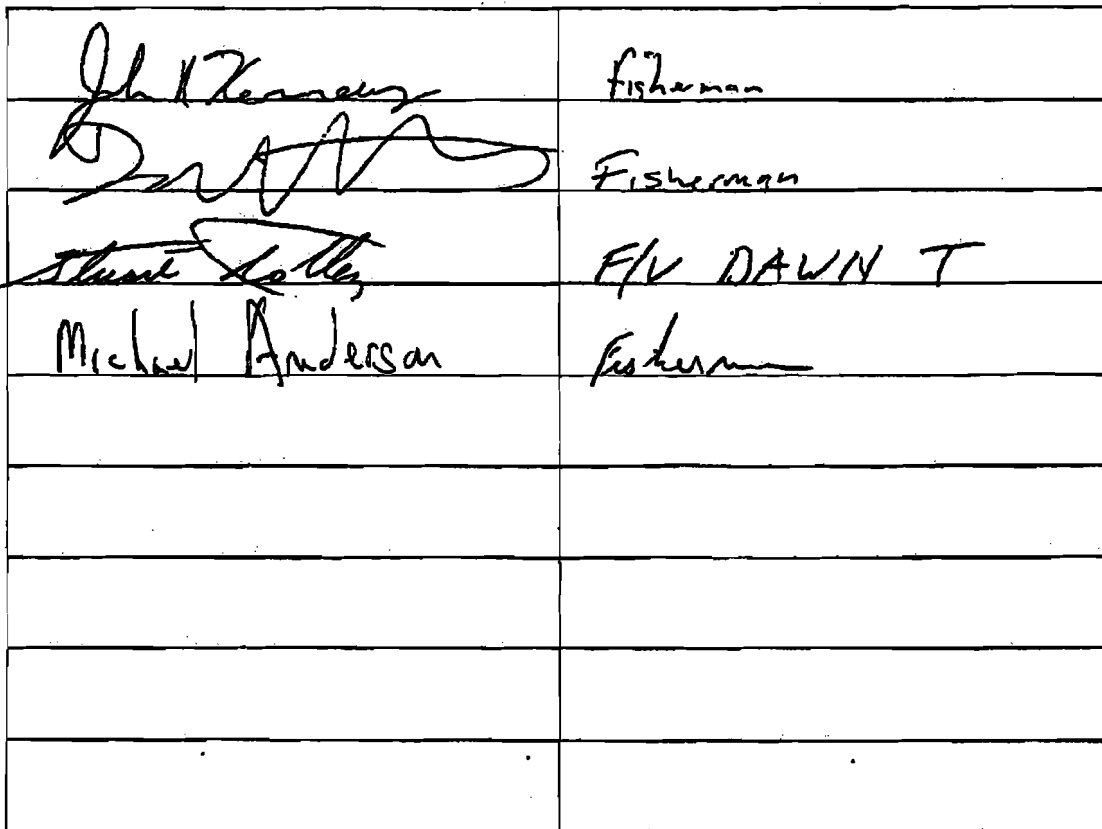 John Kennedy Fisherman
Fisherman
Stuart F/V DAWN T
Michael Anderson Fisherman